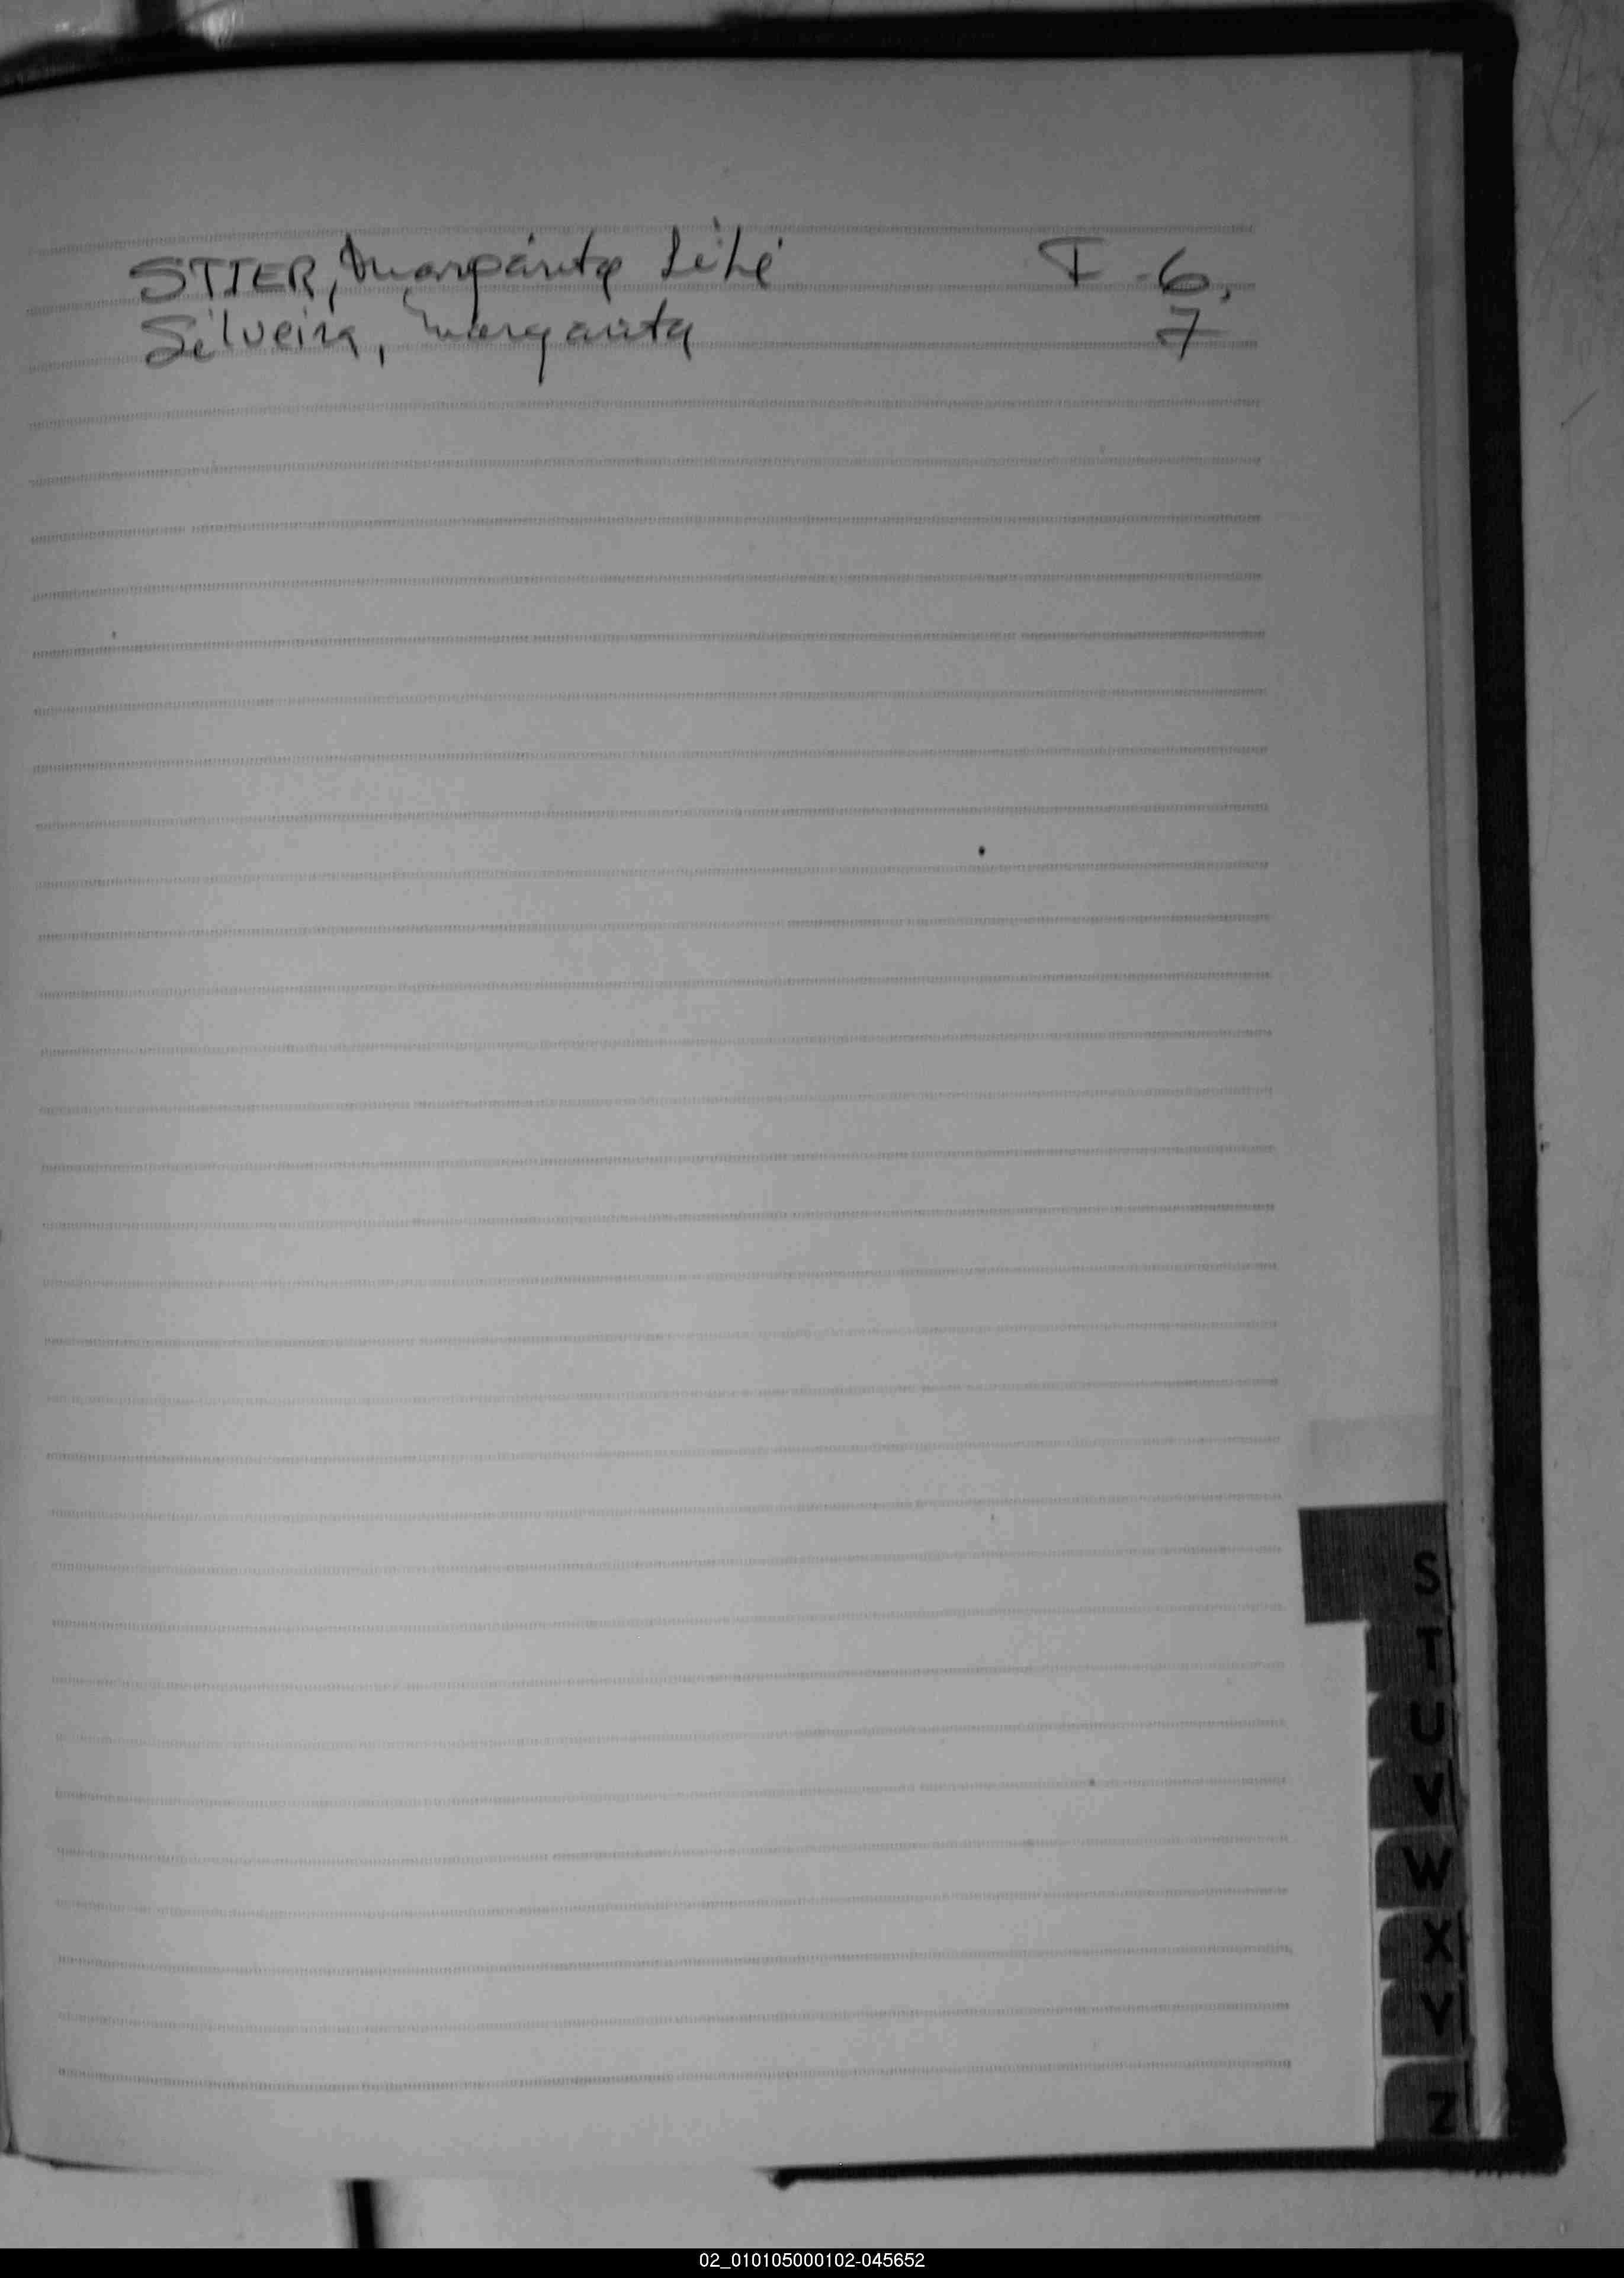 STIER, Margarita Lilí I - 6,
Silveira, Margarita 7
S
T
U
V
W
X
Y
Z
02_010105000102-045652